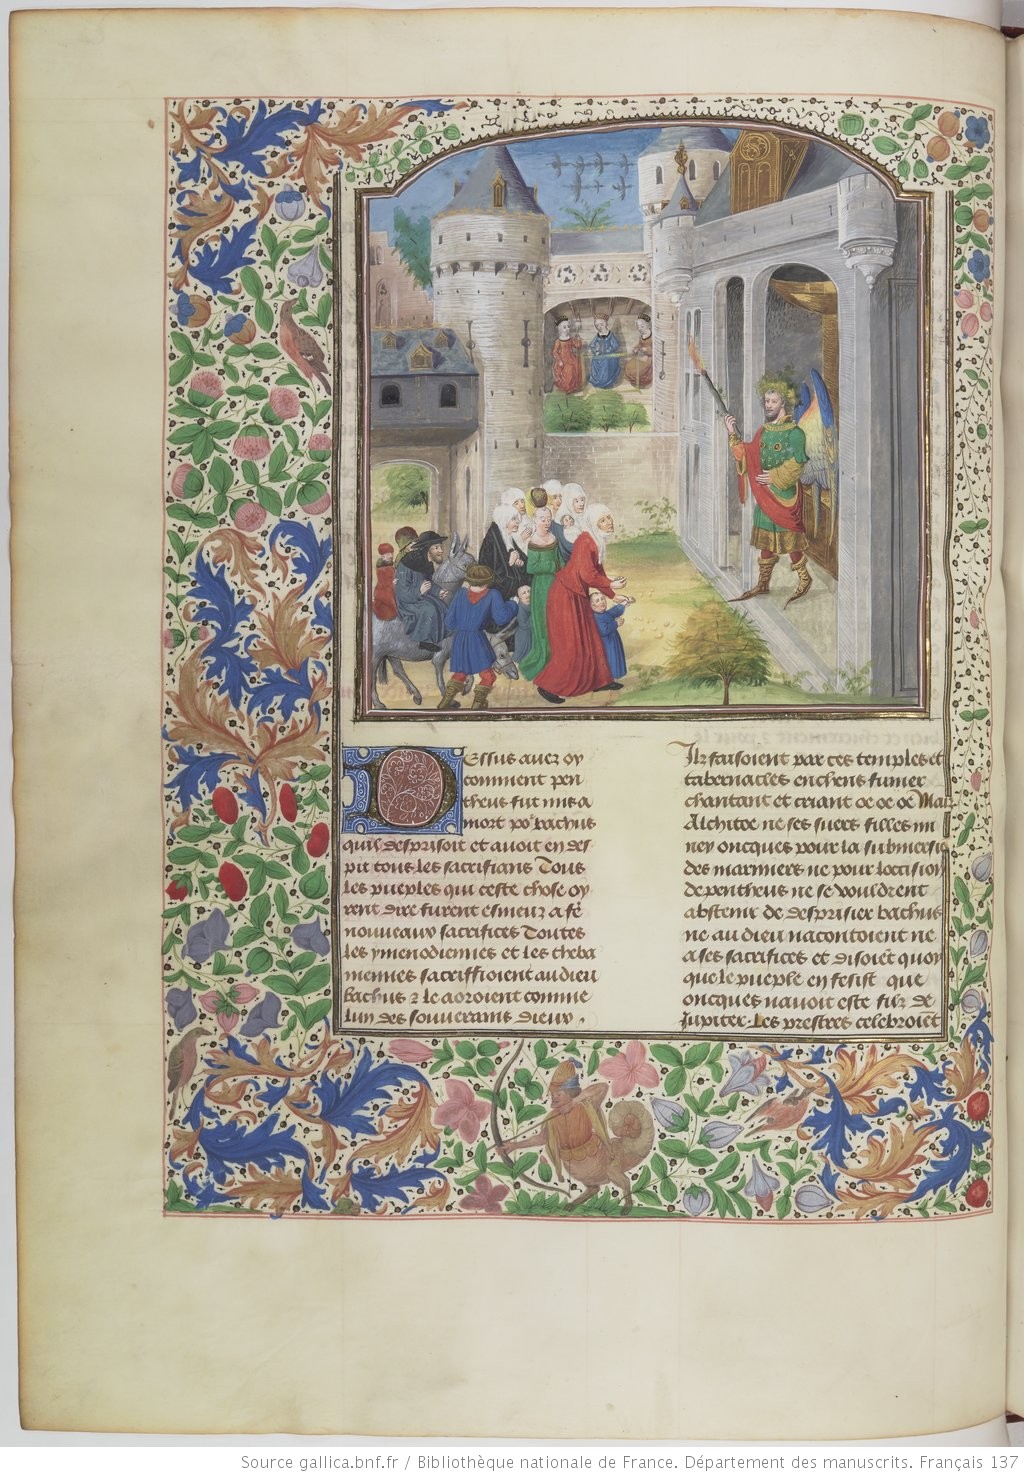 Dessus auez oy
comment pen
theus fut mis a
mort po[ur] bachus
quil desprisoit et auoit en des
pit tous les sacrifians Tous
les pueples qui ceste chose oy
rent dire furent esmeuz a fe
nouueaux sacrifices Toutes
les ymenodiennes et les theba
niennes sacriffioient au dieu
bachus z le aoroient comme
lun des souuerains dieux .
Ilz faisoient par ces temples et
tabernacles enchens fumer
chantant et criant oe oe oe Mais
Alchitoe ne ses suers filles mi
ney oncques pour la submersio
des marniers ne pour loccision
de pentheus ne se vouldrent
abstenir de desprisier bachus
ne au dieu nacontoient ne
a ses sacrifices et disoiet quoy
que le pueple en fesist que
oncques nauoit este filz de
Jupiter. Les prestres celebroiet
Source gallica.bnf.fr / Bibliothèque nationale de France. Département des manuscrits. Français 137